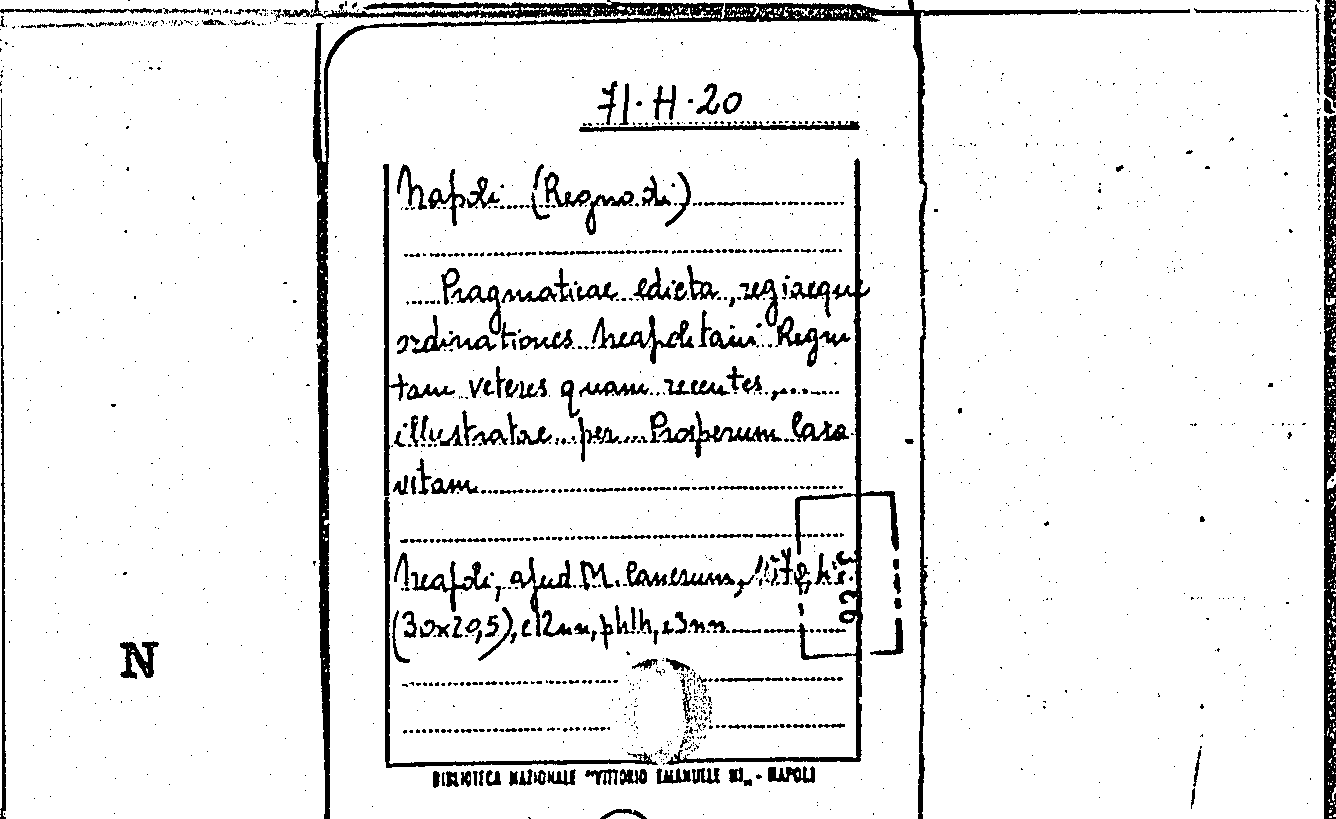 71·H·20
Napoli (Regno di)
Pragmaticae edicta, regiaeque
ordinationes Neapolitani Regni
tam veteres quam recentes,...
illustratae per Prosperum Cara
vitam
Neapoli, apud M. Cancrum,
(30x20,5), c12nn,
N
BIBLIOTECA NAZIONALE "VITTORIO EMANUELE III" - NAPOLI